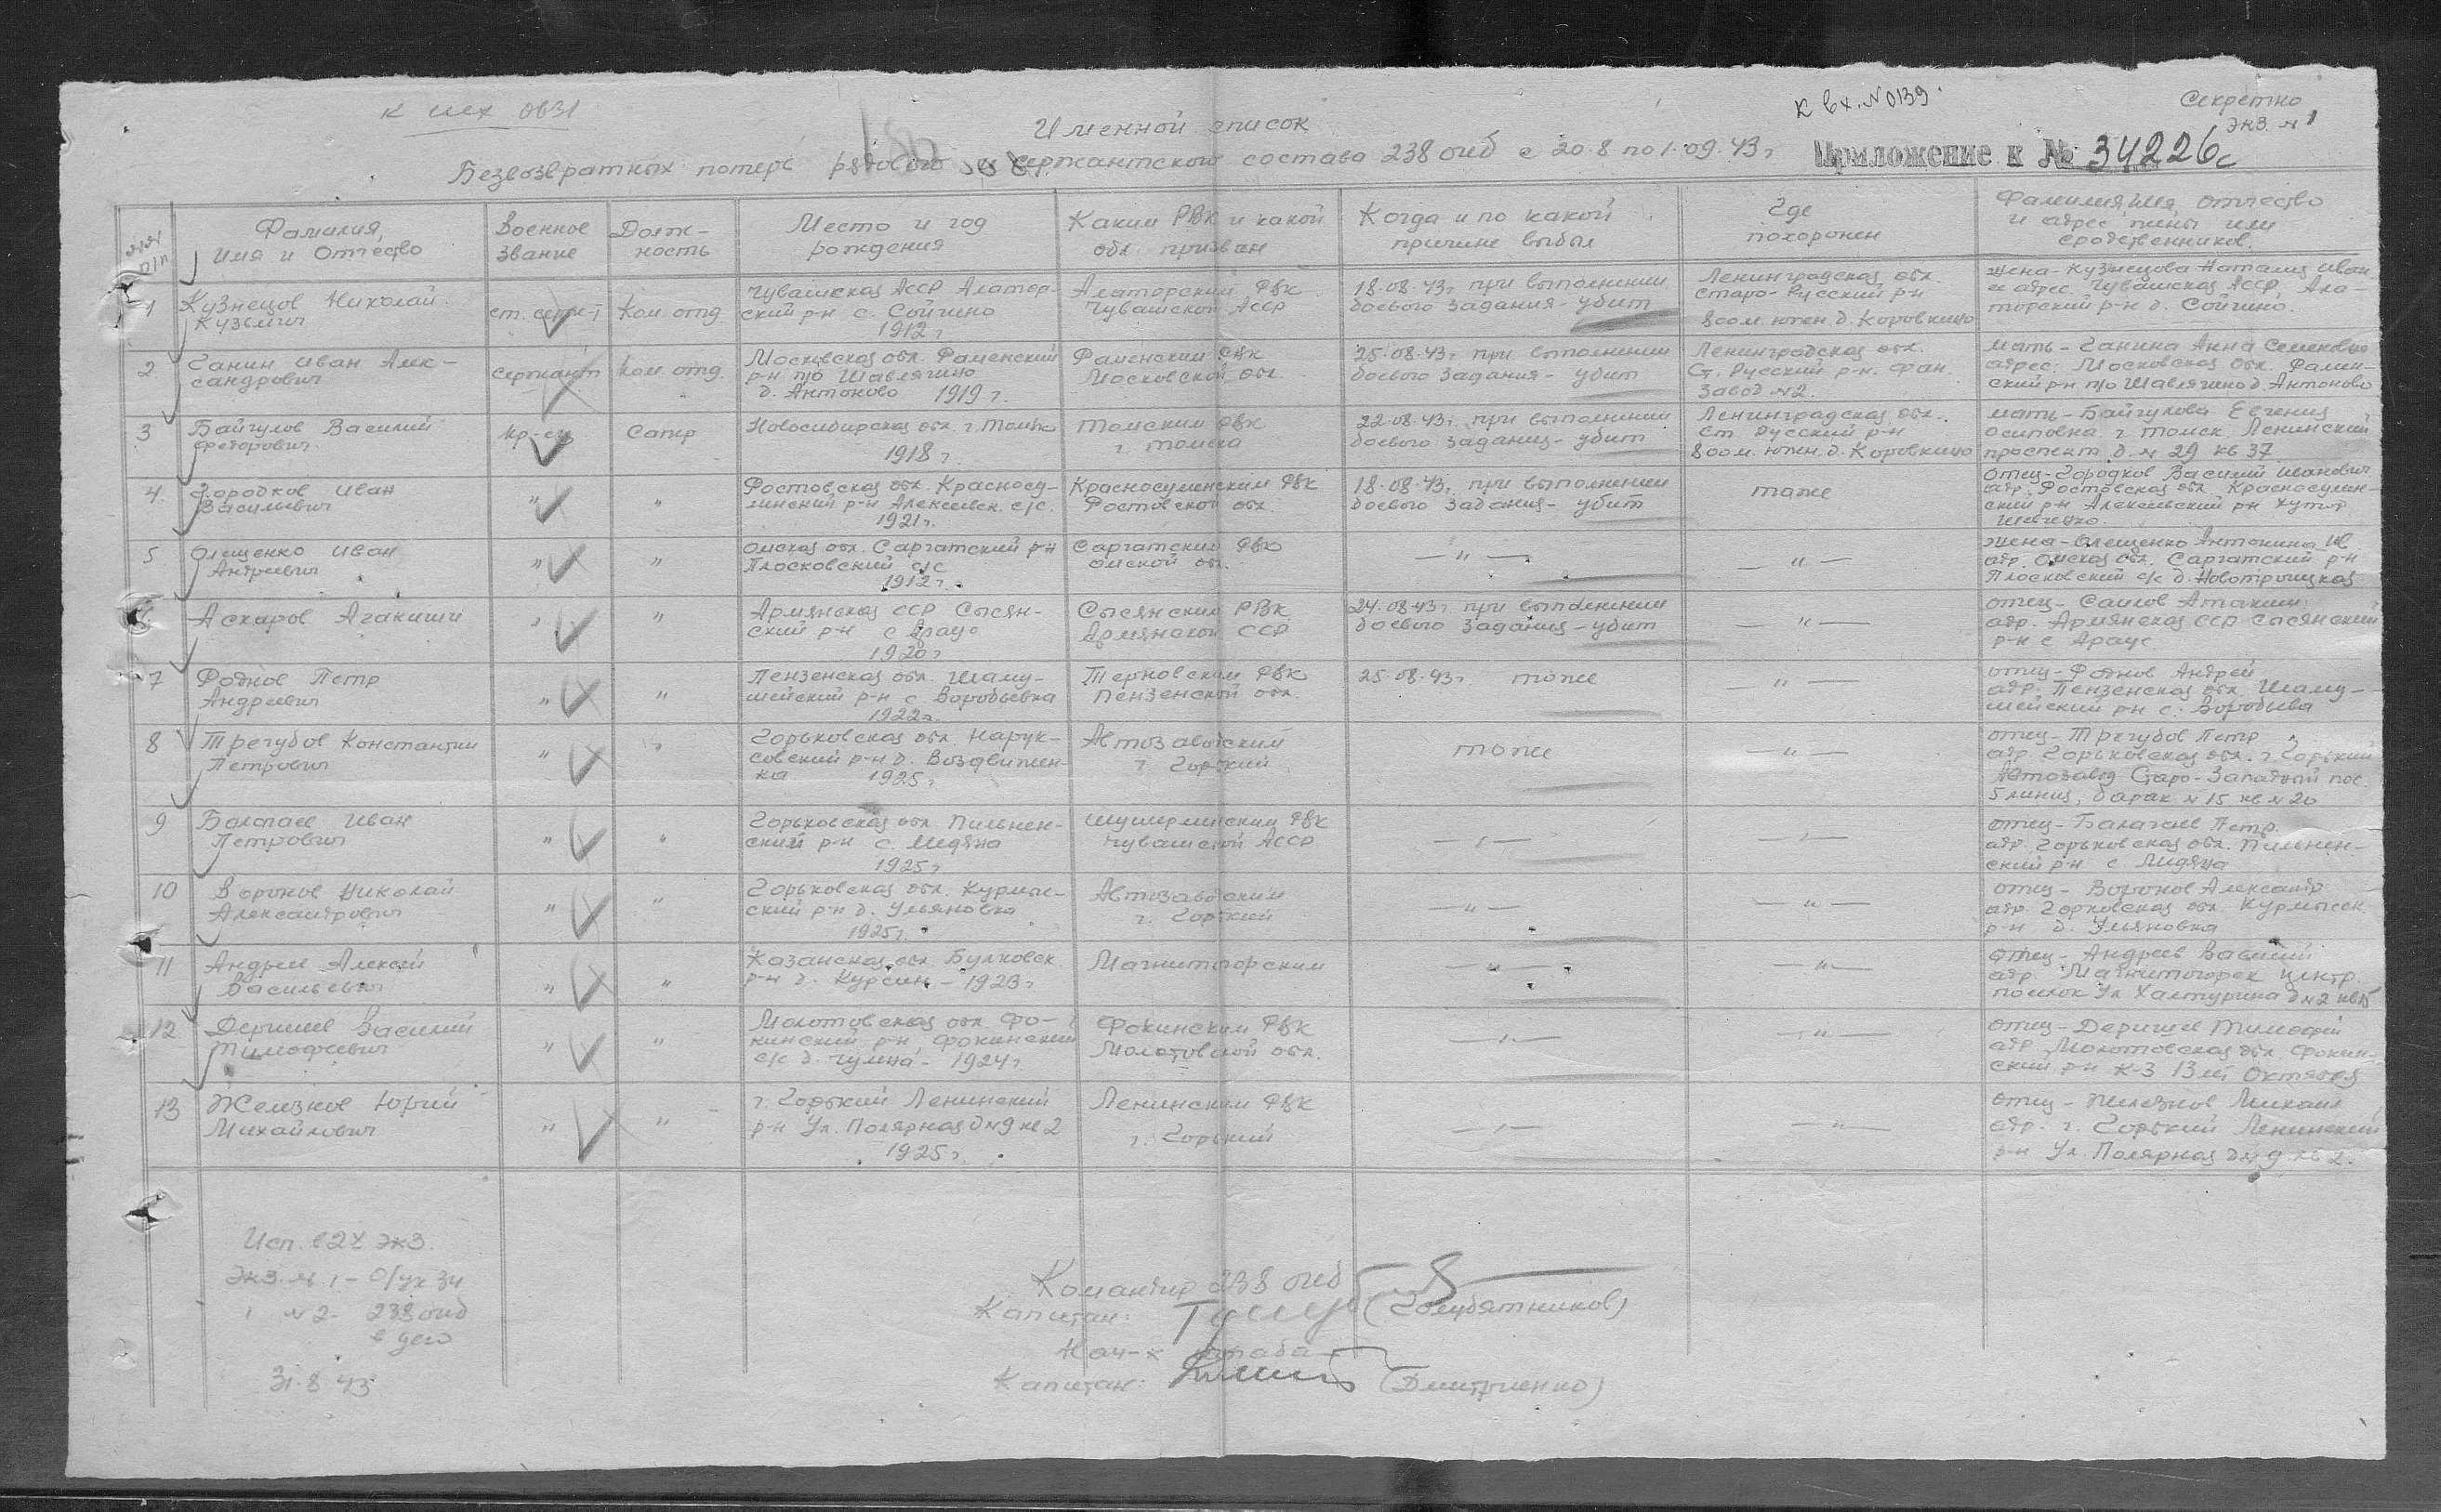 к исх 0631
к вх. № 0139
Секретно
экз. № 1
Именной список
Безвозвратных потерь рядового и сержантского состава 238 оиб с 20.8 по 1.09.43 г
Приложение к № 34226с
№№ п/п
Фамилия, Имя и Отчество
Военное звание
Должность
Место и год рождения
Каким РВК и какой обл. призван
Когда и по какой причине выбыл
Где похоронен
Фамилия Имя отчество и адрес жены или родственников.
1
Кузнецов Николай
Кузьмич
ст. серж-т
Ком. отд
Чувашская АССР Алатор-
ский р-н с. Сойгино
1912 г
Алаторский РВК
Чувашской АССР
18.08.43г при выполнении
боевого задания - убит
Ленинградская обл.
Старо-Русский р-н
800 м. южн. д. Коровкино
жена - Кузнецова Наталия Иван
и адрес. Чувашская АССР Ала-
торский р-н д. Сойгино.
2
Ганин Иван Алек-
сандрович
сержант
Ком. отд.
Московская обл. Раменский
р-н п/о Шавлягино
д. Антоново 1919 г.
Раменским РВК
Московской обл
25.08.43г при выполнении
боевого задания - убит
Ленинградская обл.
Ст. Русский р-н. фан.
завод №2.
мать - Ганина Анна Семеновна
адрес: Московская обл. Рамен-
ский р-н п/о Шавлягино д. Антоново
3
Байгулов Василий
Федорович
кр-ец
Сапер
Новосибирская обл. г. Томск
1918 г.
Томским РВК
г. Томска
22.08.43г. при выполнении
боевого задания - убит
Ленинградская обл.
Ст Русский р-н
800 м. южн. д. Коровкино
мать - Байгулова Евгения
Осиповна г. Томск Ленинский
проспект д. № 29 кв 37
4.
Городков Иван
Васильевич
"
"
Ростовская обл. Красносу-
линский р-н Алексеевск. с/с.
1921 г.
Красносулинским РВК
Ростовской обл.
18.08.43г. при выполнении
боевого задания - убит
тоже
Отец - Городков Василий Иванович
адр. Ростовская обл. Красносулин-
ский р-н Алексеевский р-н хутор
Шевченко.
5
Олещенко Иван
Андреевич
"
"
Омская обл. Саргатский р-н
Плосковский с/с
1912 г.
Саргатским РВК
Омской обл.
— " —
— " —
Жена - Олещенко Антонина Ив
адр. Омская обл. Саргатский р-н
Плосковский с/с д. Новотроицкая
6
Аскаров Агакиши
"
"
Армянская ССР Сысян-
ский р-н с Арауо
1920 г
Сысянским РВК
Армянской ССР
24.08.43г при выполнении
боевого задания - убит
— " —
отец - Саилов Атакиши
адр. Армянская ССР Сысянский
р-н с Араус
7
Роднов Петр
Андреевич
"
"
Пензенская обл. Шаму-
шейский р-н с. Воробьевка
1922 г.
Терновским РВК
Пензенской обл.
25.08.43г. тоже
— " —
отец - Роднов Андрей
адр. Пензенская обл. Шаму-
шейский р-н с. Воробьева
8
Трегубов Константин
Петрович
"
"
Горьковская обл Нарук-
совский р-н д. Воздвижен-
ка 1925 г
Автозаводским
г. Горький
тоже
— " —
отец - Трегубов Петр
адр. Горьковская обл. г. Горький
Автозавод Старо-Западный пос.
5 линия, барак № 15 кв № 20
9
Балагаев Иван
Петрович
"
"
Горьковская обл. Пильнен-
ский р-н с. Медяна
1925 г
Шумерлинским РВК
Чувашской АССР
— " —
— " —
отец - Балагаев Петр.
адр. Горьковская обл. Пильнен-
ский р-н с. Медяна
10
Воронов Николай
Александрович
"
"
Горьковская обл. Курмыш-
ский р-н д. Ульяновка
1925 г.
Автозаводским
г. Горький
— " —
— " —
отец - Воронов Александр
адр. Горковская обл. Курмышск
р-н д. Ульяновка
11
Андреев Алексей
Васильевич
"
"
Казанская обл Булковск
р-н д. Курсин - 1923 г
Магнитогорским
— " —
— " —
отец - Андреев Василий
адр. Магнитогорск центр.
поселок Ул Халтурина д №2 кв 15
12
Деришев Василий
Тимофеевич
"
"
Молотовская обл. Фо-
кинский р-н, Фокинский
с/с д. Чумна - 1924 г.
Фокинским РВК
Молотовской обл.
— " —
— " —
отец - Деришев Тимофей
адр Молотовская обл Фокин-
ский р-н к-з 13 лет Октября
13
Железнов Юрий
Михайлович
"
"
г. Горький Ленинский
р-н Ул. Полярная д №9 кв 2
1925 г.
Ленинским РВК
г. Горький
— " —
— " —
отец - Железнов Михаил
адр. г. Горький Ленинский
р-н Ул Полярная д № 9 кв 2.
Исп. в 2х экз.
Экз. № 1 - О/ук 34
" № 2 - 238 оиб
в дело
31.8 43
Командир 238 оиб
Капитан: (Голубятников)
Нач-к штаба -
Капитан: (Дмитриенко)